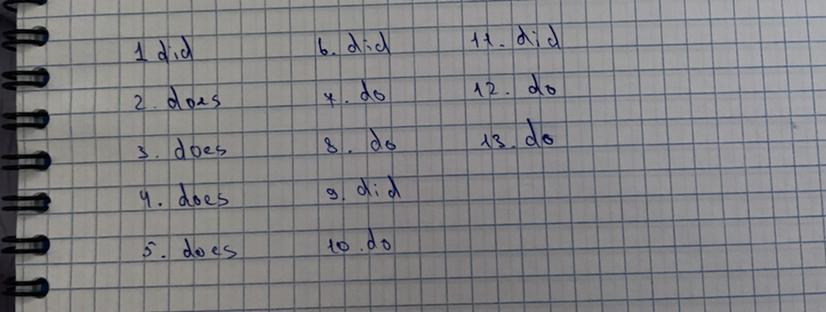 1 did
2. does
3. does
4. does
5. does
6. did
7. do
8. do
9. did
10. do
11. did
12. do
13. do